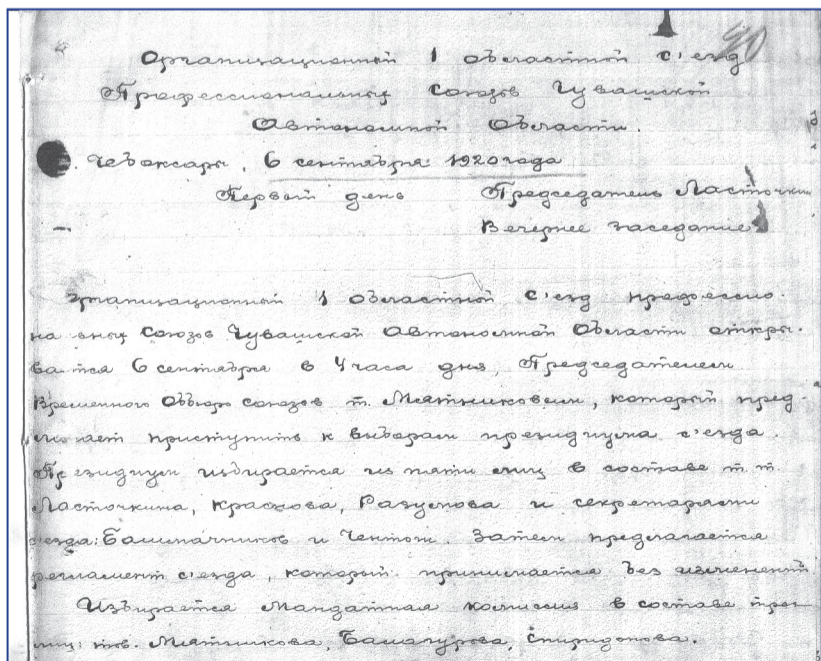 40
Организационный 1 областной с'езд
Профессиональных союзов Чувашской
Автономной Области.
. Чебоксары, 6 сентября 1920 года
Первый день Председатель Ласточкин
Вечернее заседание
Организационный 1 областной с'езд профессио-
нальных союзов Чувашской Автономной Области откры-
вается 6 сентября в 4 часа дня, Председателем
Временного Оббюро союзов т. Мятниковым, который пред-
лагает приступить к выборам президиума с'езда.
Президиум избирается из пяти лиц в составе т.т.
Ласточкина, Краснова, Разумова и секретарями
с'езда: Башмачников и Затем предлагается
регламент с'езда, который принимается без изменений
Избирается Мандатная комиссия в составе трех
лиц: тов. Мятникова, Балагурова, Спиридонова.